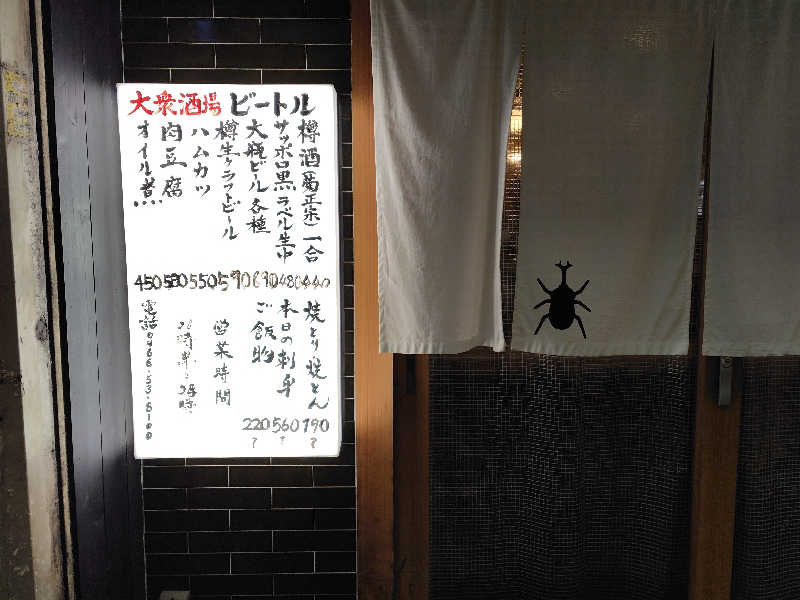 大衆酒場 ビートル
樽酒(菊正宗)一合 440
サッポロ黒ラベル生中 480
大瓶ビール各種 690
樽生クラフトビール 590
ハムカツ 550
肉豆腐 580
オイル煮 450
焼とり焼とん 190〜
本日の刺身 560〜
ご飯物 220〜
営業時間
電話0466.53.8100